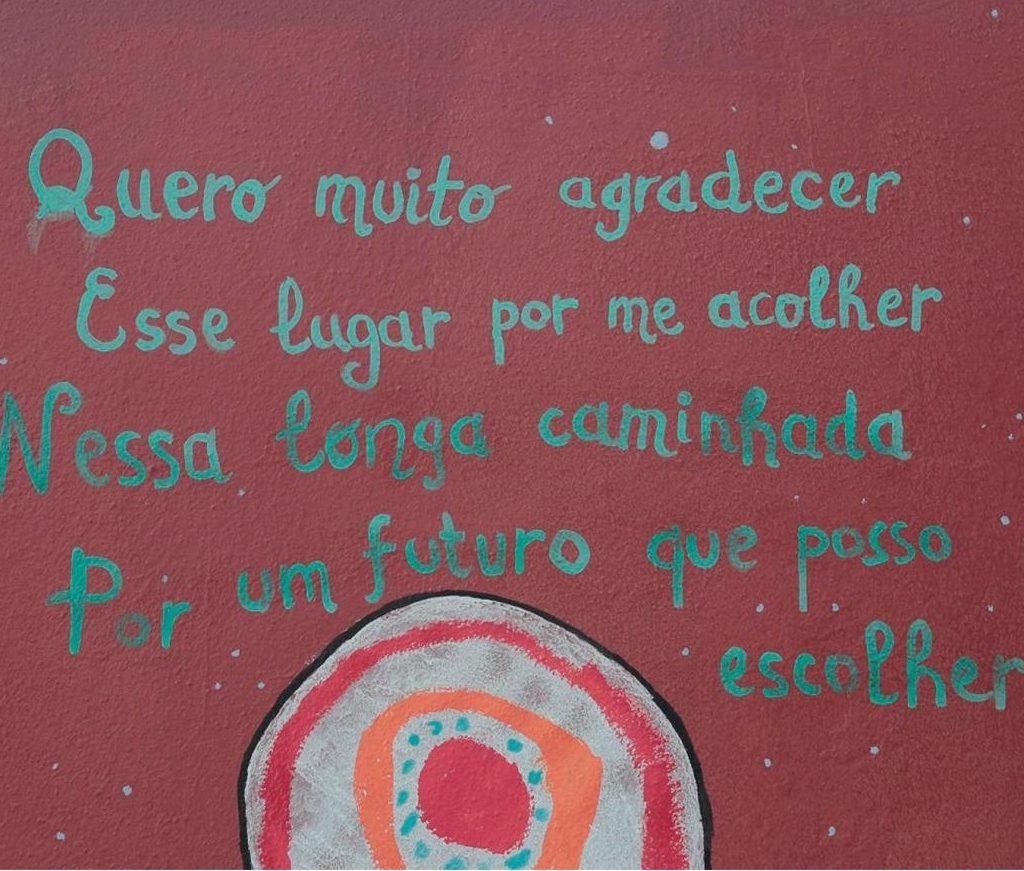 Quero muito agradecer
Esse lugar por me acolher
Nessa longa caminhada
Por um futuro que posso
escolher